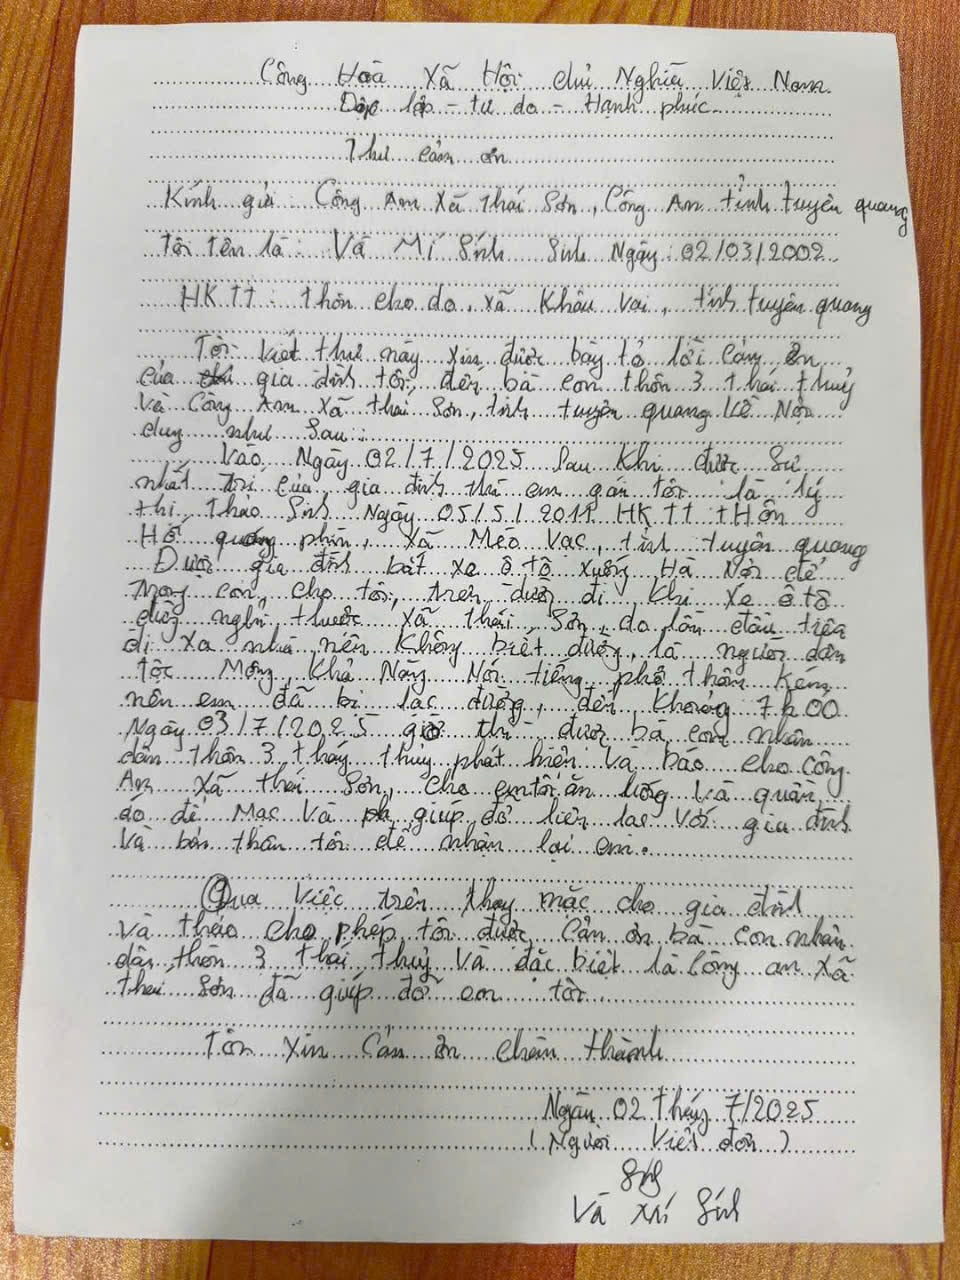 Công Hoà Xã Hội chủ Nghĩa Việt Nam
Độc lập - tự do - Hạnh phúc
Thư cảm ơn
Kính gửi: Công An Xã thái Sơn, Công An tỉnh tuyên quang
Tôi tên là: Và Mí Sính Sinh Ngày: 02/03/2002
HKTT: thôn cho do, xã Khâu vai, tỉnh tuyên quang
Tôi viết thư này xin được bày tỏ lời cảm ơn
của gia đình tôi, đến bà con thôn 3 thái thuỷ
và Công An Xã thái Sơn, tỉnh tuyên quang về Nội
dung như Sau:
Vào Ngày 02/7/2025 Sau Khi được Sự
nhất trí của gia đình thì em gái tôi là lý
thị Thảo Sinh Ngày 05/5/2011 HKTT tHôn
Hố quáng phìn, xã Mèo Vạc, tỉnh tuyên quang
Được gia đình bắt xe ô tô xuống Hà Nội để
trong con, cho tôi, trên đường đi Khi xe ô tô
dừng nghỉ thuộc xã thái Sơn, do lần đầu tiên
đi xa nhà nên Không biết đường, là người dân
tộc Mông, Khả Năng Nói tiếng phổ thông Kém
nên em đã bị lạc đường, đến Khoảng 7h00
Ngày 03/7/2025 giờ thì được bà con nhân
dân thôn 3 tháy thủy phát hiện và báo cho công
An Xã thái Sơn, cho em tôi ăn uống và quần
áo để Mặc Và giúp đỡ liên lạc Với gia đình
Và bản thân tôi để nhận lại em.
Qua Việc trên thay mặc cho gia đình
Và thảo cho phép tôi được Cản ơn bà con nhân
dân thôn 3 thái thuỷ Và đặc biệt là Công an xã
thai Sơn đã giúp đỡ em tôi
Tôi xin Cản ơn chân thành
Ngày 02 tháng 7/2025
(Người Viết đơn)
Sính
Và Mí Sính